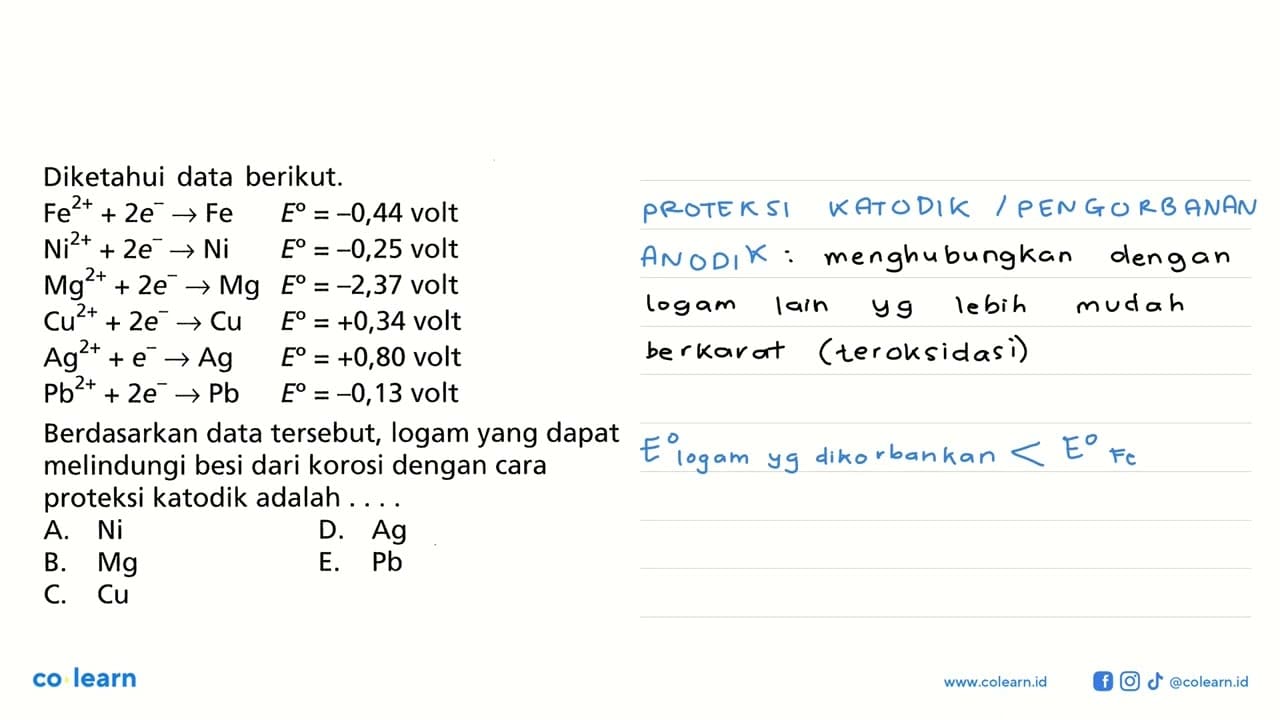 Diketahui data berikut.
Fe²⁺ + 2e⁻ → Fe E° = –0,44 volt
Ni²⁺ + 2e⁻ → Ni E° = –0,25 volt
Mg²⁺ + 2e⁻ → Mg E° = –2,37 volt
Cu²⁺ + 2e⁻ → Cu E° = +0,34 volt
Ag²⁺ + e⁻ → Ag E° = +0,80 volt
Pb²⁺ + 2e⁻ → Pb E° = –0,13 volt
Berdasarkan data tersebut, logam yang dapat
melindungi besi dari korosi dengan cara
proteksi katodik adalah . . . .
A. Ni D. Ag
B. Mg E. Pb
C. Cu
PROTEKSI KATODIK / PENGORBANAN
ANODIK : menghubungkan dengan
logam lain yg lebih mudah
berkarat (teroksidasi)
E° logam yg dikorbankan < E° Fe
co learn
www.colearn.id @colearn.id